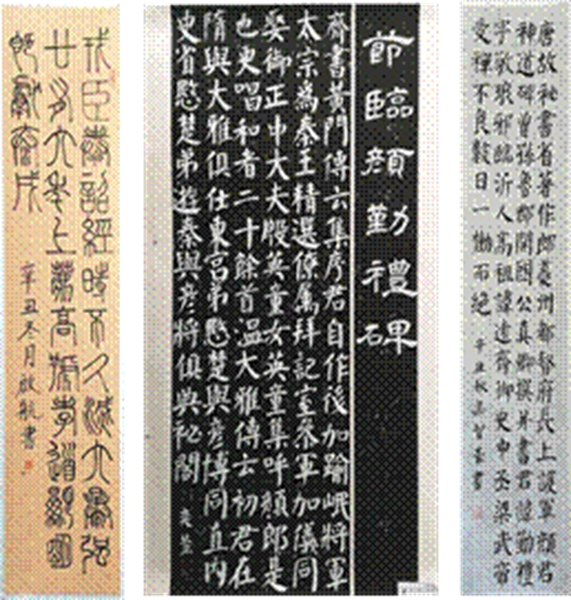 唐故祕書省著作郎夔州都督府長上護軍顏君
神道碑曾孫魯郡開國公真卿撰并書君諱勤禮
字敬琅邪臨沂人高祖諱遠齊御史中丞梁武帝
受禪不食數日一慟而絕
辛丑秋書
節臨顏勤禮碑
齊書黃門傳云集序君自作後加踰岷將軍
太宗為秦王精選僚屬拜記室參軍加儀同
娶御正中大夫殷英童女英童集呼顏郎是
也更唱和者二十餘首溫大雅傳云初君在
隋與大雅俱仕東宮弟愍楚與彥博同直內
史省愍楚弟遊秦與彥將俱典祕閣
戎臣奉詔經時不久滅六暴強
廿有六年上薦高號孝道顯明
既獻泰成
辛丑冬月啟航書